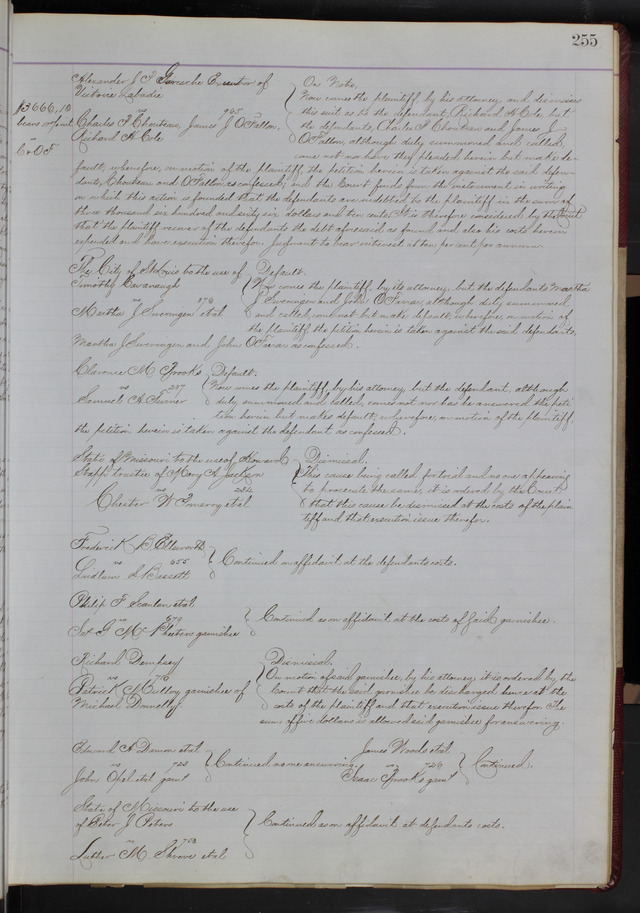 255
Alexander J. P. Garesche Executor of
Victoire Labadie
vs 965
Charles P Chouteau, James J O'Fallon,
Richard H Cole
$3666,10
bears 10 per ct.
C vs O F
On Note.
Now comes the plaintiff by his attorney and dismisses
this suit as to the defendant, Richard H Cole, but
the defendants, Charles P Chouteau and James J.
O'Fallon, although duly summoned and called,
come not nor have they pleaded herein but make de-
fault; wherefore, on motion of the plaintiff the petition herein is taken against the said defen-
dants, Chouteau and O'Fallon as confessed; and the Court finds from the instrument in writing
on which this action is founded that the defendants are indebted to the plaintiff in the sum of
three thousand six hundred and sixty six dollars and ten cents. It is therefore considered by the Court
that the plaintiff recover of the defendants the debt aforesaid as found and also his costs herein
expended and have execution therefor. Judgment to bear interest at ten per cent per annum.
The City of St Louis to the use of
Timothy Cavanaugh
vs 376
Martha J Swearingen et al
Default.
Now comes the plaintiff, by its attorney, but the defendants Martha
J. Swearingen and John O'Farrar, although duly summoned,
and called, come not but make default; wherefore, on motion of
the plaintiff the petition herein is taken against the said defendants,
Martha J Swearingen and John O'Farrar as confessed.
Clarence M Brooks
vs 287
Samuel H Turner
Default.
Now comes the plaintiff, by his attorney, but the defendant, although
duly summoned and called, comes not nor has he answered the peti-
tion herein but makes default; wherefore, on motion of the plaintiff,
the petition herein is taken against the defendant as confessed.
State of Missouri to the use of Howard
Stapp trustee of Mary A Jackson
vs 282
Chester W Pomeroy et al
Dismissal.
This cause being called for trial and no one appearing
to prosecute the same, it is ordered by the Court
that this cause be dismissed at the costs of the plain
tiff and that execution issue therefor.
Frederick B Ellsworth
vs 455
Ludlum & Bassett
Continued on affidavit at the defendants costs.
Philip F Scanlan et al
vs 579
Jas G McPheeters garnishee
Continued as on affidavit at the costs of said garnishee.
Richard Dempsey
vs 716
Patrick McCulloy garnishee of
Michael Donnelly
Dismissal.
On motion of said garnishee, by his attorney, it is ordered by the
Court that the said garnishee be discharged hence at the
costs of the plaintiff and that execution issue therefor. The
sum of five dollars is allowed said garnishee for answering.
Edward A Damon et al
vs 723
John Opel et al garnt
Continued as on answering.
James Woods et al
vs 726
Isaac Brooks garnt
Continued.
State of Missouri to the use
of Peter J Peters
vs 753
Luther M Shreve et al
Continued as on affidavit at defendants costs.